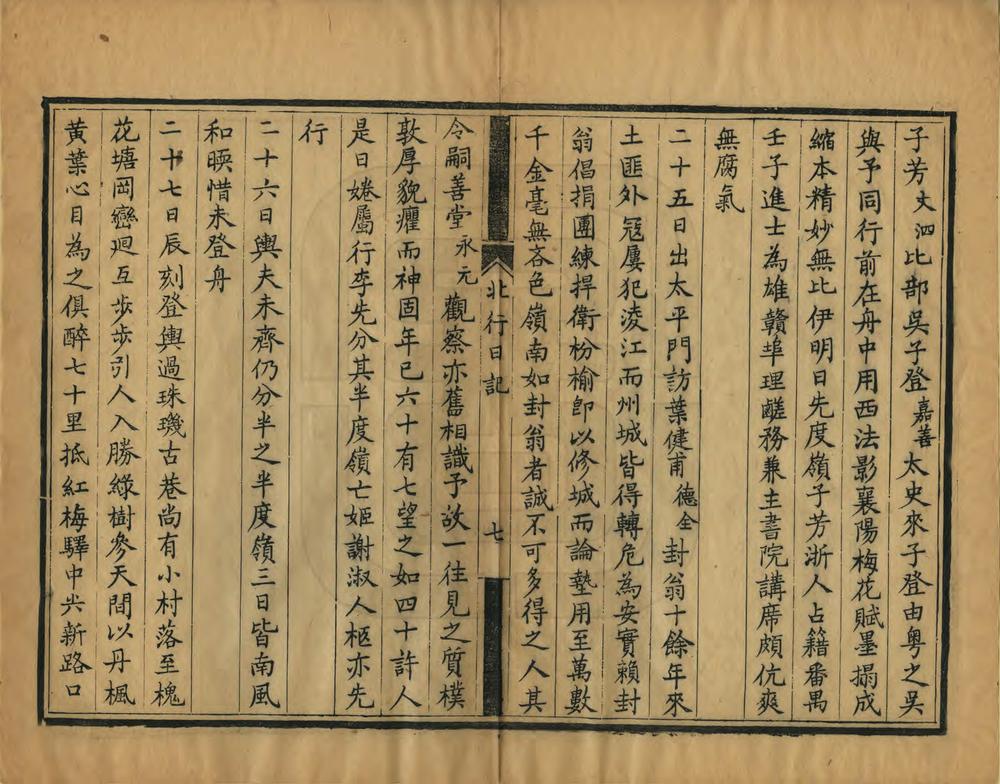 子芳丈泗比部吳子登嘉善太史來子登由粵之吳
與予同行前在舟中用西法影襄陽梅花賦墨搨成
縮本精妙無比伊明日先度嶺子芳浙人占籍番禺
壬子進士為雄贛埠理鹺務兼主書院講席頗伉爽
無腐氣
二十五日出太平門訪葉健甫德全封翁十餘年來
土匪外寇屢犯淩江而州城皆得轉危為安實賴封
翁倡捐團練捍衛枌榆卽以修城而論墊用至萬數
千金毫無吝色嶺南如封翁者誠不可多得之人其
北行日記
七
令嗣善堂永元觀察亦舊相識予故一往見之質樸
敦厚貌癯而神固年已六十有七望之如四十許人
是日婘屬行李先分其半度嶺亡姬謝淑人柩亦先
行
二十六日輿夫未齊仍分半之半度嶺三日皆南風
和暎惜未登舟
二十七日辰刻登輿過珠璣古巷尚有小村落至槐
花塘岡巒迴互步步引人入勝綠樹參天間以丹楓
黃葉心目為之俱醉七十里抵紅梅驛中火新路口